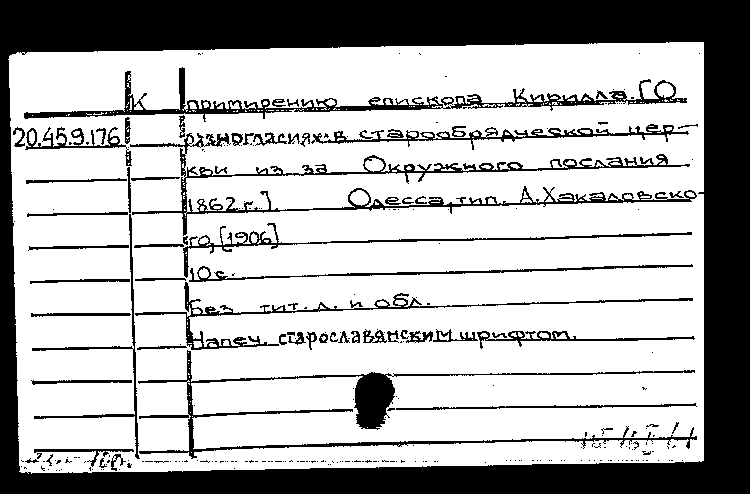 К примирению епископа Кирилла. [О
20.45.9.176 разногласиях в старообрядческой цер-
кви из за Окружного послания
1862 г.]. Одесса, тип. А. Хакаловско-
го, [1906]
10 с.
Без тит. л. и обл.
Напеч. старославянским шрифтом.